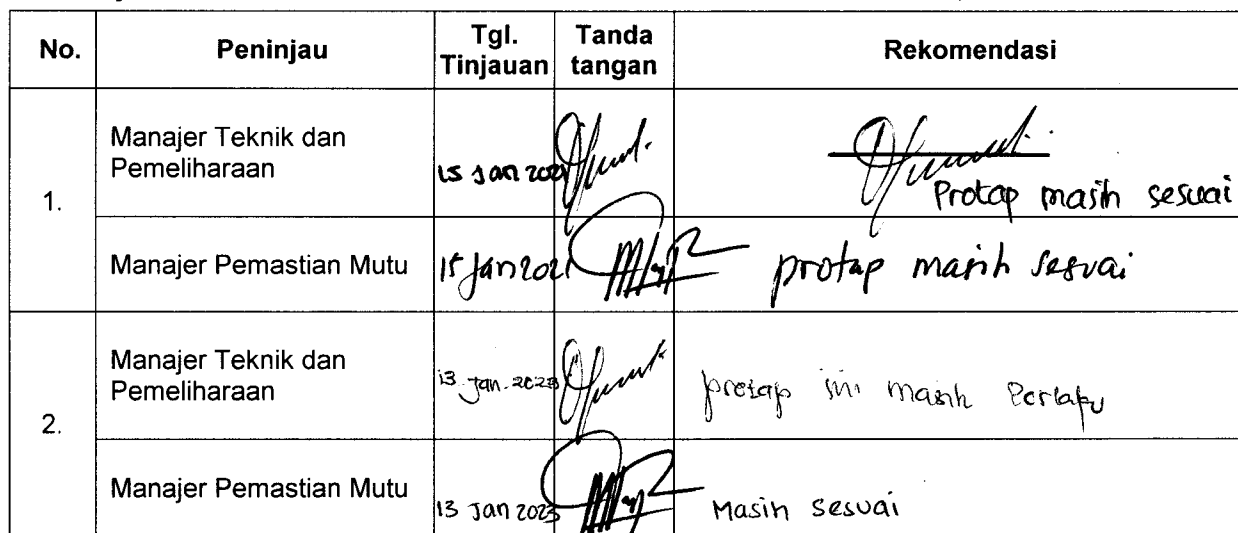 No. Peninjau Tgl. Tinjauan Tanda tangan Rekomendasi
1.
Manajer Teknik dan
Pemeliharaan
15 Jan 2021
Protap masih sesuai
Manajer Pemastian Mutu 15 Jan 2021 protap masih sesuai
2.
Manajer Teknik dan
Pemeliharaan
13 Jan. 2023
protap ini masih berlaku
Manajer Pemastian Mutu 13 Jan 2023 Masih sesuai